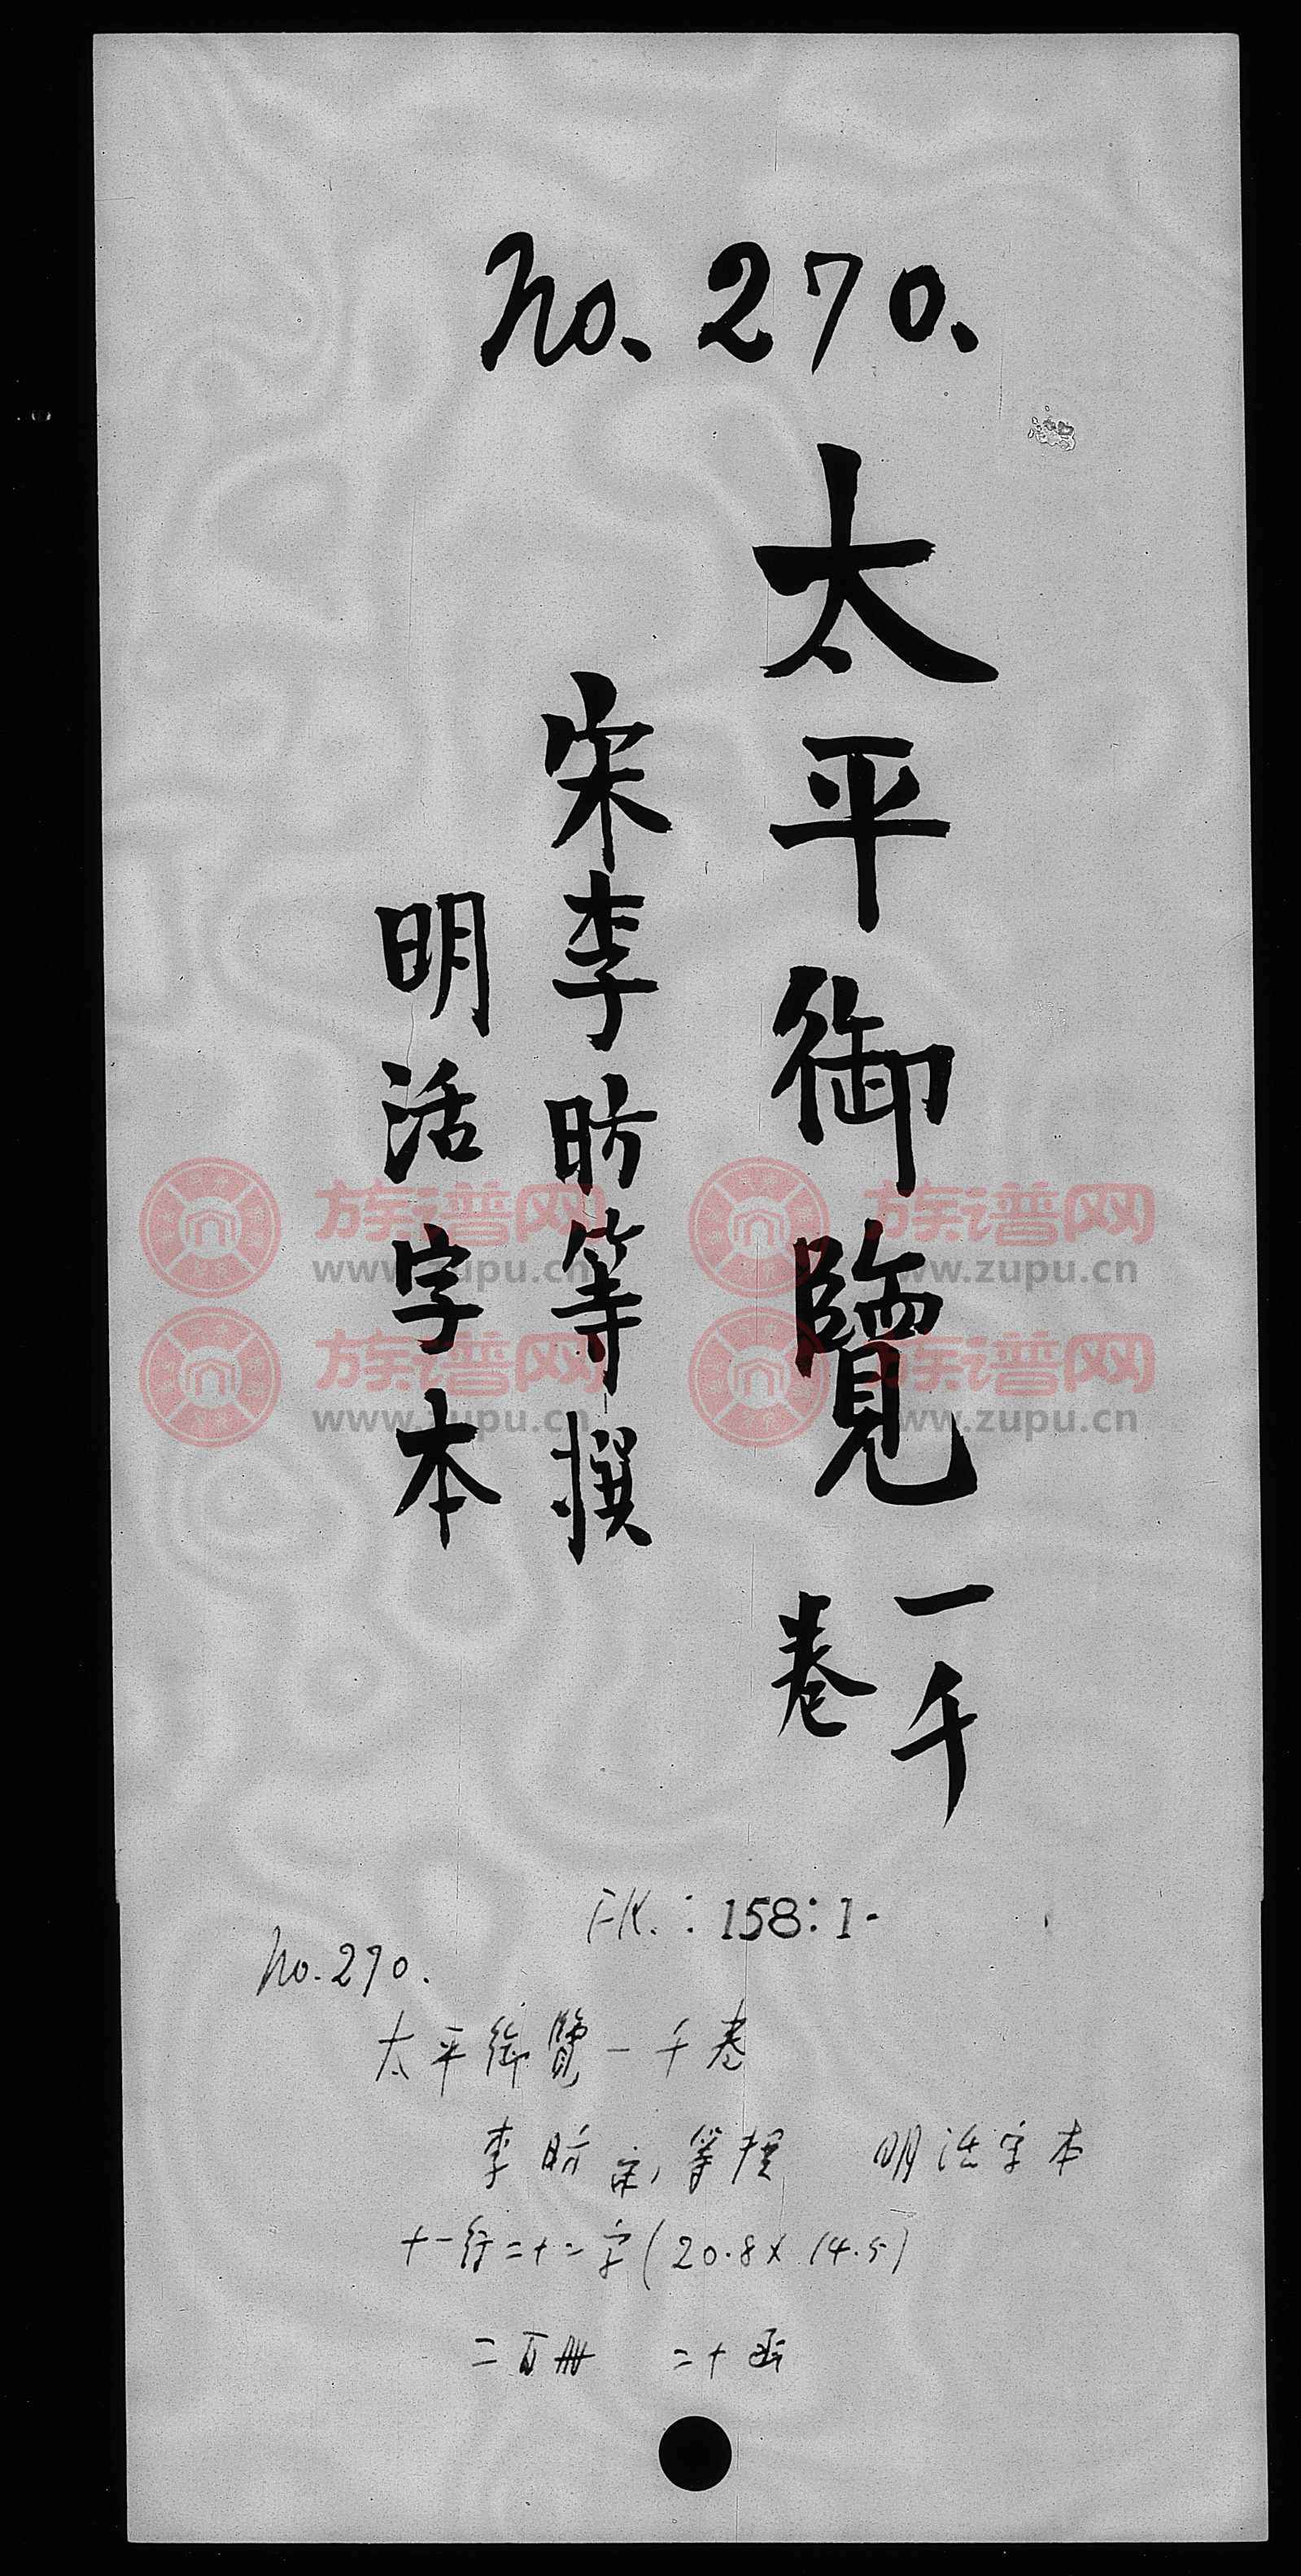 No. 270.
太平御覽一千卷
宋李昉等撰
明活字本
FK.: 158:1-
No. 270.
太平御覽一千卷
李昉宋等撰 明活字本
十一行二十二字(20.8×14.5)
二百冊 二十函
族谱网 族谱网
www.zupu.cn www.zupu.cn
族谱网 族谱网
www.zupu.cn www.zupu.cn